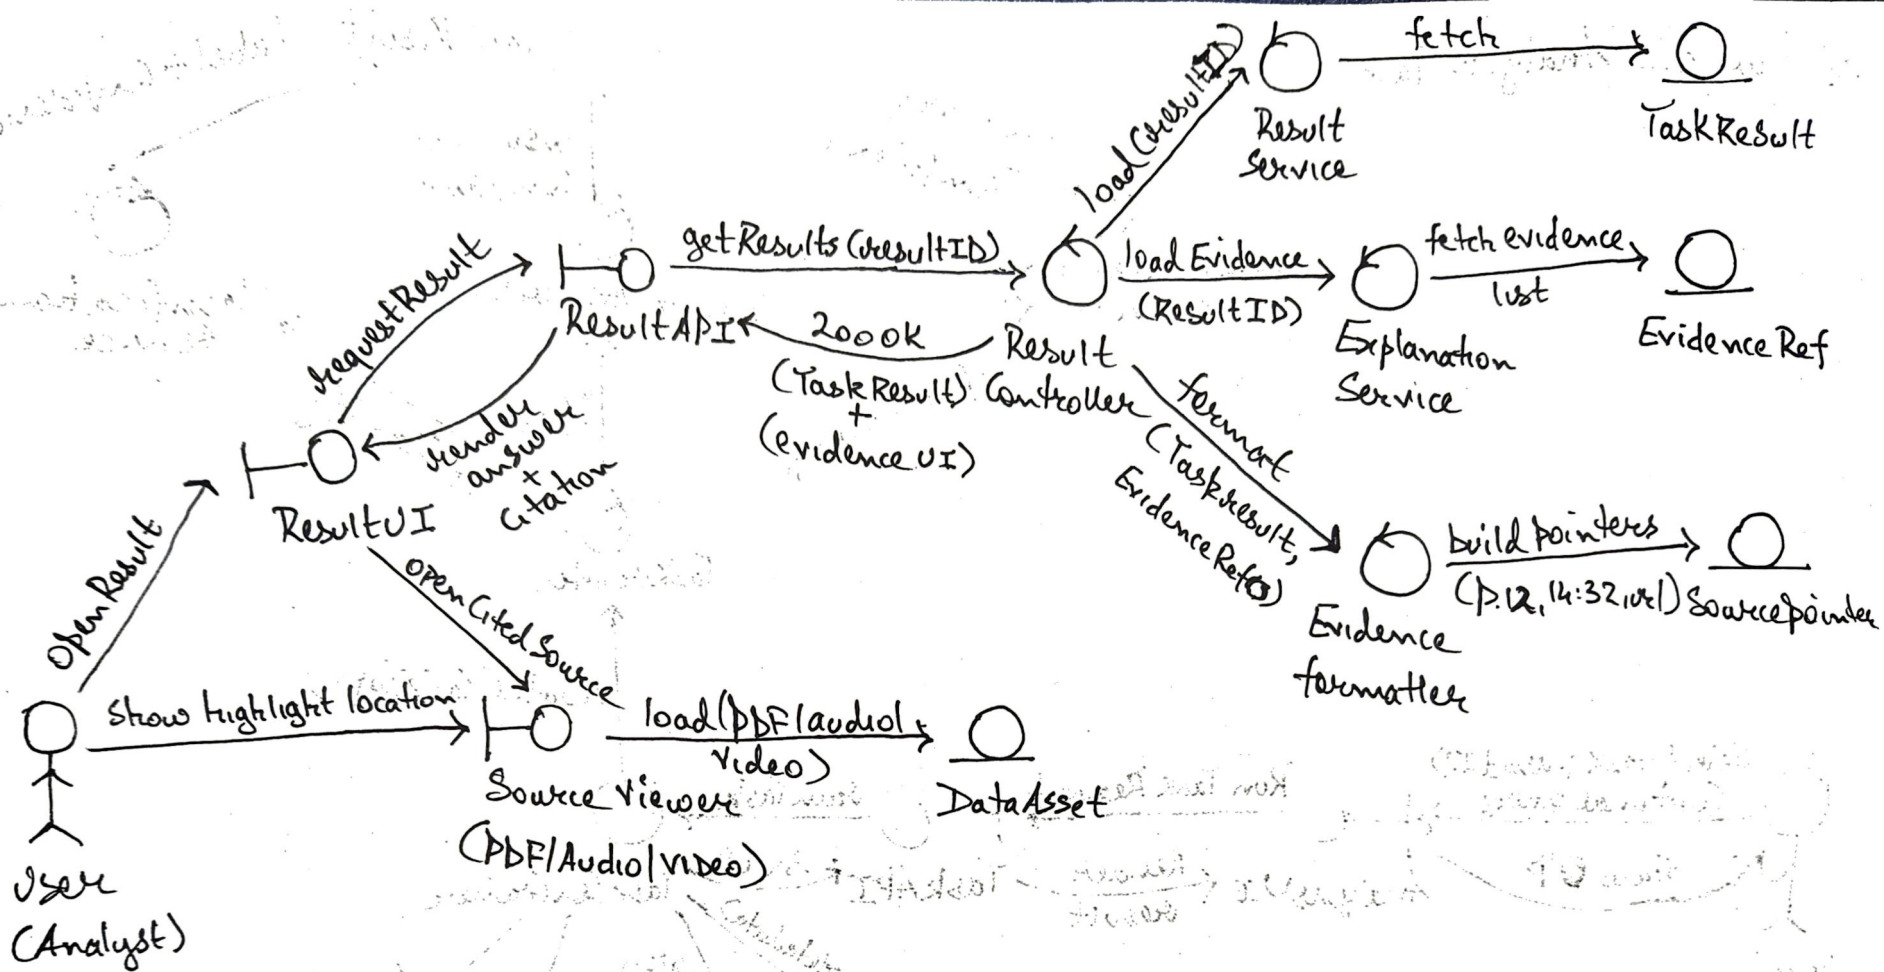 fetch
load(resultID)
Result
Service
TaskResult
getResults(resultID)
loadEvidence
(ResultID)
fetch evidence
list
requestResult
ResultAPI
200 OK
(TaskResult)
+
(evidence UI)
Result
Controller
Explanation
Service
EvidenceRef
render
answer
+
citation
format
(Taskresult,
EvidenceRef(s))
ResultUI
openResult
openCitedSource
build pointers
(p.12, 14:32, url)
Sourcepointer
Evidence
formatter
Show highlight location
load(PDF/audio/
video)
Source Viewer
(PDF/Audio/Video)
DataAsset
User
(Analyst)